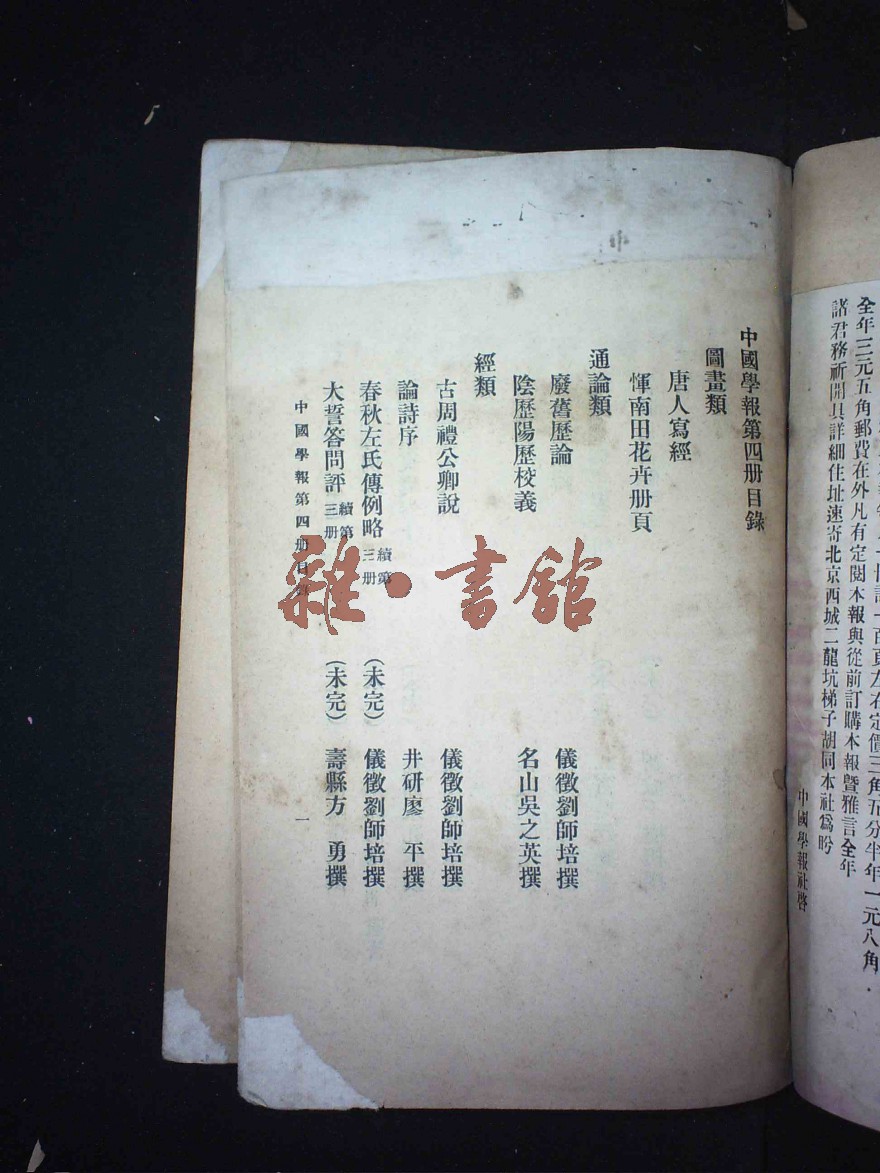 全年三元五角郵費在外凡有定閱本報與從前訂購本報暨雅言全年
諸君務祈開具詳細住址速寄北京西城二龍坑梯子胡同本社爲盼
中國學報社啓
中國學報第四册目錄
圖畫類
唐人寫經
惲南田花卉册頁
通論類
廢舊歷論 儀徵劉師培撰
陰歷陽歷校義 名山吳之英撰
經類
古周禮公卿說 儀徵劉師培撰
論詩序 井研廖 平撰
春秋左氏傳例略 續第三册 (未完) 儀徵劉師培撰
大誓答問評 續第三册 (未完) 壽縣方 勇撰
中國學報第四册目錄 一
雜·書館